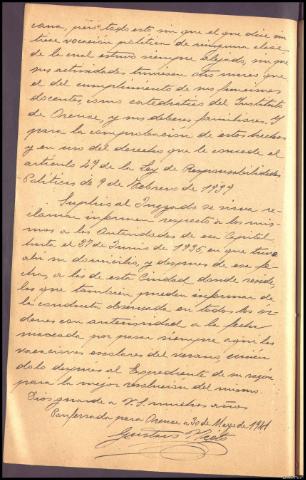 cana, pero todo esto sin que el que dice sin
tiera vocación política de ninguna clase,
de la cual estuvo siempre alejado, sin que
sus actividades tuviesen otro norte que
el del cumplimiento de sus funciones
docentes, como catedrático del Instituto
de Orense, y sus deberes familiares. Y
para la comprobación de estos hechos
y en uso del derecho que le concede el
artículo 49 de la Ley de Responsabilidades
Políticas de 9 de Febrero de 1939
Suplica al Juzgado se sirva re-
clamar informes respecto a los mis-
mos a las Autoridades de esa Capital
hasta el 27 de Junio de 1936 en que tuvo
ahí su domicilio, y después de esa fe-
cha, a las de esta Ciudad donde reside,
las que también pueden informar de
la conducta observada en todos los ór-
denes con anterioridad a la fecha
indicada por pasar siempre aquí las
vacaciones escolares del verano, unién-
dolo después al Expediente de su razón
para la mejor resolución del mismo.
Dios guarde a V.S. muchos años
Ponferrada para Orense a 30 de Mayo de 1941
Gustavo